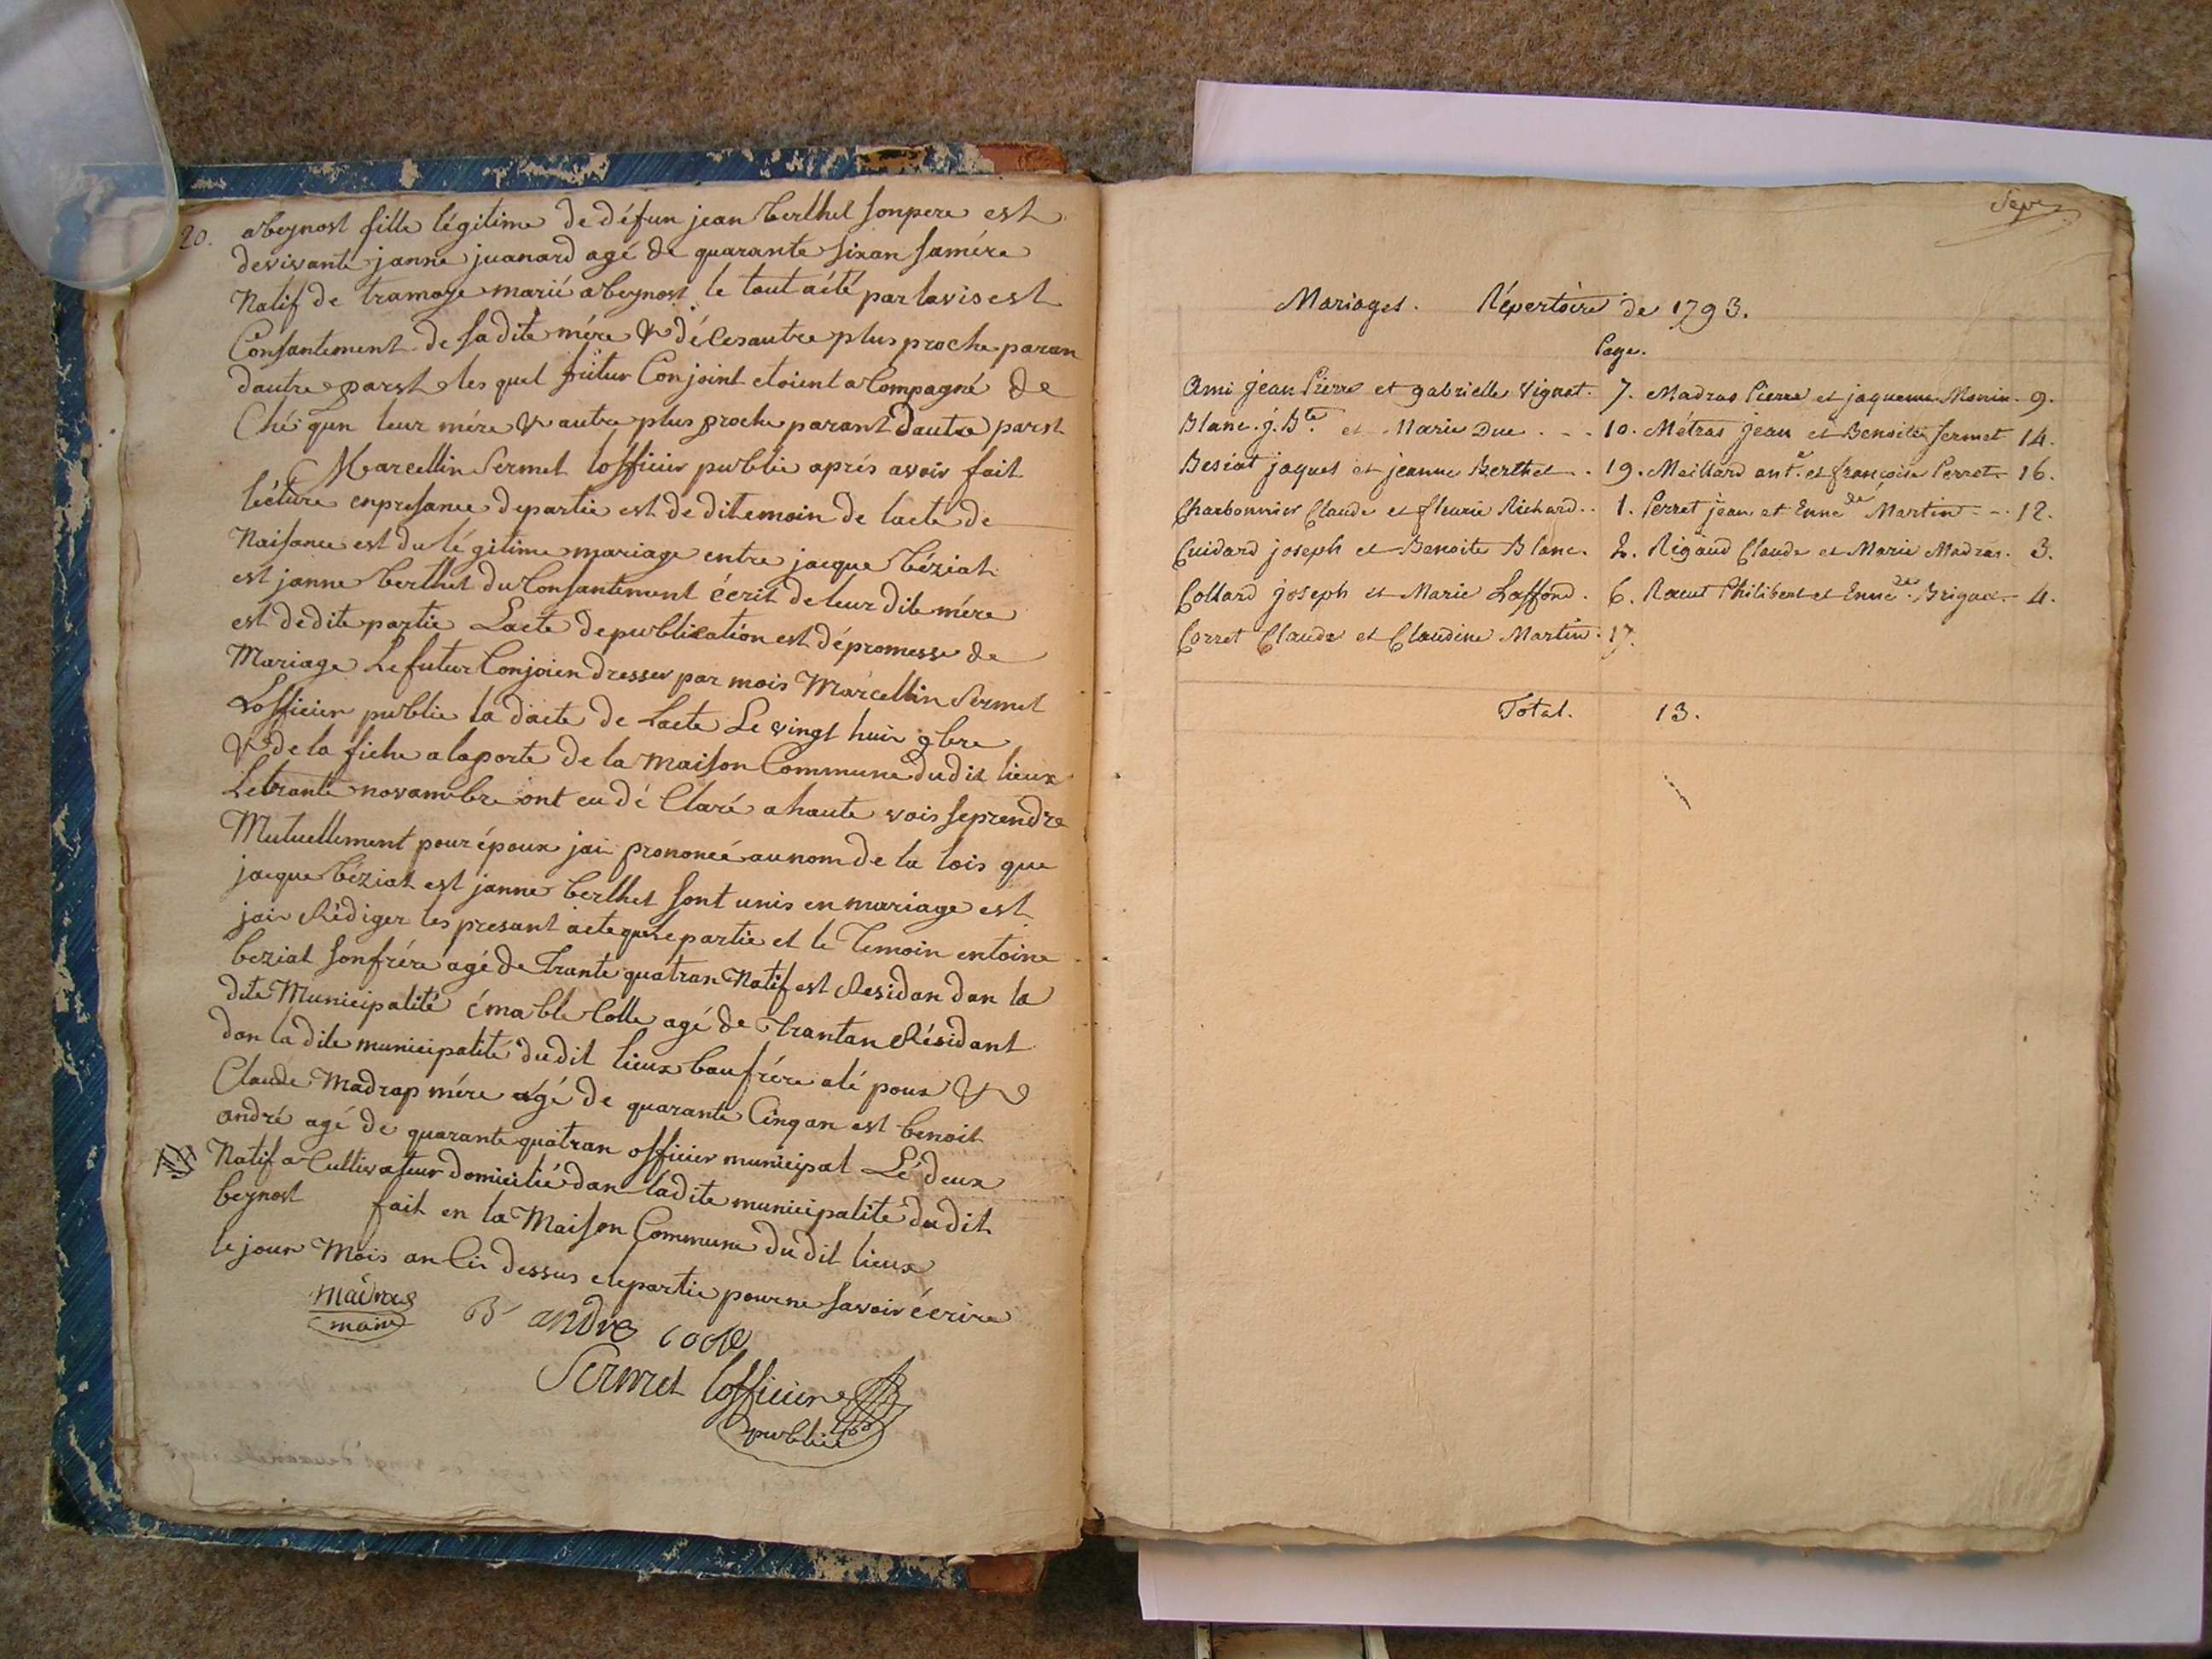 20.
abeynost fille légitime de défun jean berthet sonpere est
devivante janne juanard agé de quarante sixan samére
Natif de tramoye marié abeynost le tout aété par lavis est
Consantement de sadite mére & déles autre plus proche paran
dautre parst les quel fûtur Conjoint etoient acompagné de
Ché qun leur mére & autre plus proche parant dautre parst
Marcellin Sermet lofficier publie aprés avoir fait
lécture enpresance departie est de ditemoin de lacte de
Naisance est du légitime mariage entre jacque béziat
est janne berthet du Consantement écrit de leur dite mére
est dedite partie Lacte depublication est dépromesse de
Mariage Le futur Conjoien dresser par mois Marcellin Sermet
Lofficier publie la dacte de Lacte Le vingt huit 9bre
& de la fiche a laporte de la Maison Commune dudit lieux
Letrante novambre ont eu dé Claré a haute vois seprendre
Mutuellement pour époux jai prononcé aunom de la lois que
jacque béziat est janne berthet sont unis en mariage est
jai Rédiger les presant acte que partie et le Temoin entoine
beziat sonfrére agé de trante quatran Natif est Residan dan la
dite Municipalité émable Colle agé de trantan Résidant
dan ladite municipalité dudit lieux baufrére alé poux &
Claude Madrap mére agé de quarante Cinqan est benoit
andré agé de quarante quatran officier municipal Lé deux
Natif a Cultivateur domicilié dan ladite municipalite dudit
beynost fait en la Maison Commune dudit lieux
le jour Mois an Cis dessus elepartie pourne savoir écrire
madras
maire
B andre colle
Sermet lofficier
publie
Mariages. Répertoire de 1793.
Page.
Ami jean Pierre et gabrielle Vignat. 7. Madras Pierre et jaqueme Monin. 9.
Blanc. j. Bte. et Marie Duc . . . 10. Métras jean et Benoite Sermet 14.
Besiat jaques et jeanne Berthet . . 19. Meillard ant.e et françoise Perret 16.
Charbonnier Claude et fleurie Richard . . 1. Perret jean et Enne.de Martin . . 12.
Cuidard joseph et Benoite Blanc. 2. Rigaud Claude et Marie Madras. 3.
Collard joseph et Marie Laffond. 6. Philibert et Enne.de 4.
Corret Claude et Claudine Martin. 17.
Total. 13.